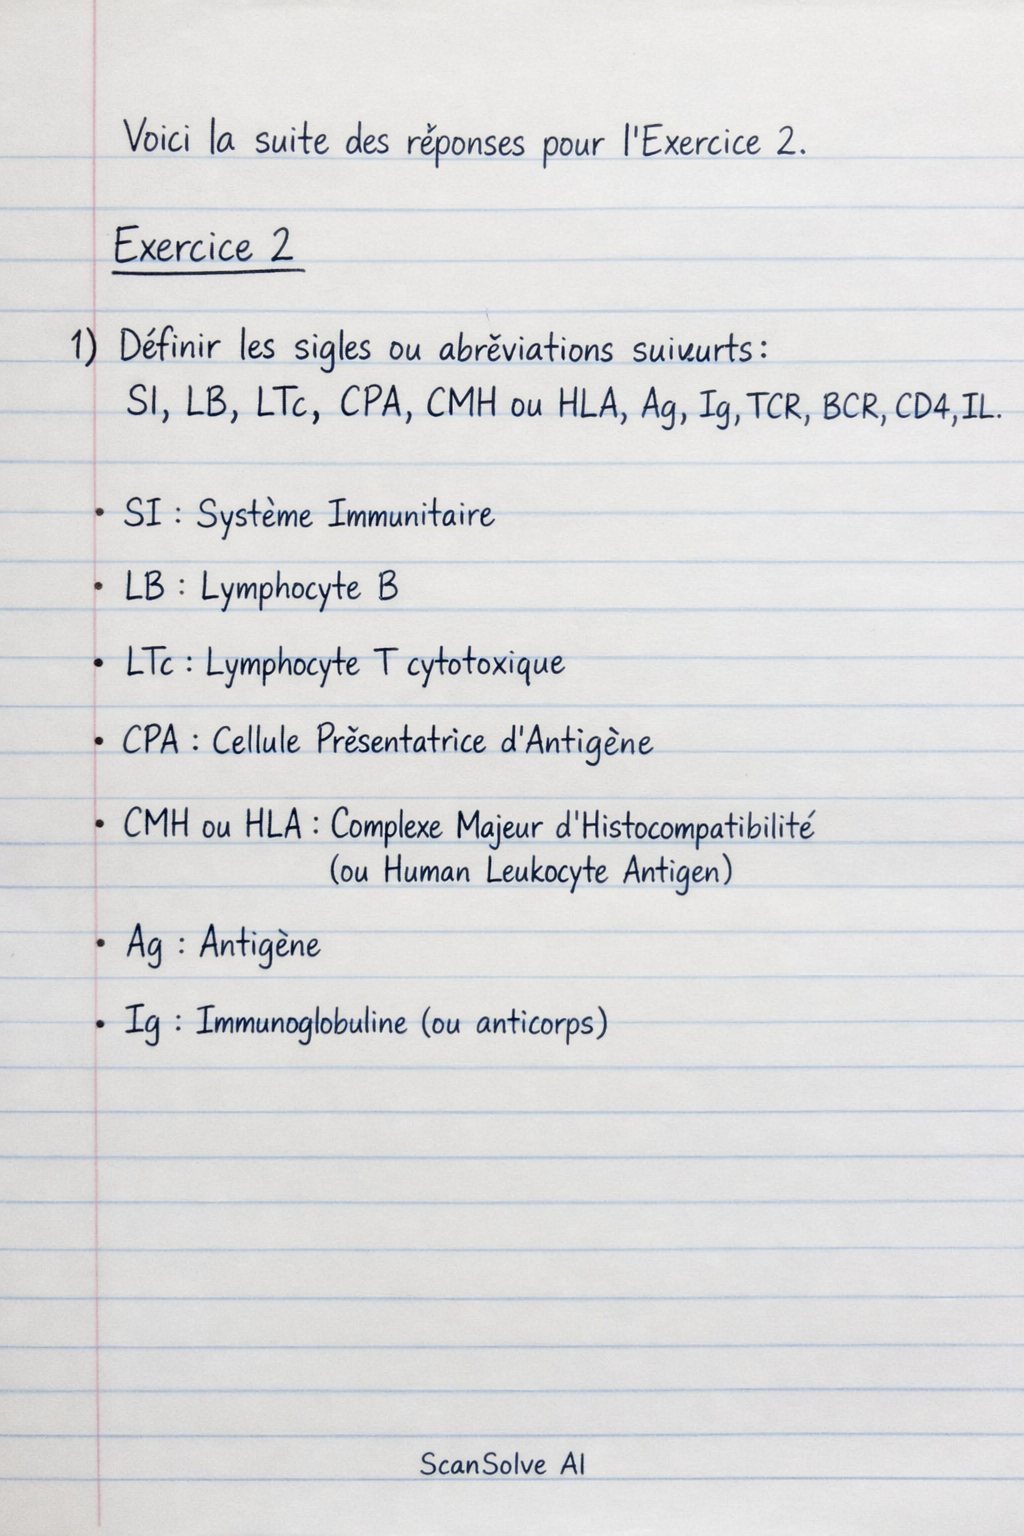 Voici la suite des rěponses pour l'Exercice 2.
Exercice 2
1) Définir les sigles ou abrěviations suivurts:
SI, LB, LTc, CPA, CMH ou HLA, Ag, Ig, TCR, BCR, CD4, IL.
• SI : Système Immunitaire
• LB : Lymphocyte B
• LTc : Lymphocyte T cytotoxique
• CPA : Cellule Prěsentatrice d'Antigène
• CMH ou HLA : Complexe Majeur d'Histocompatibilité
(ou Human Leukocyte Antigen)
• Ag : Antigène
• Ig : Immunoglobuline (ou anticorps)
ScanSolve AI